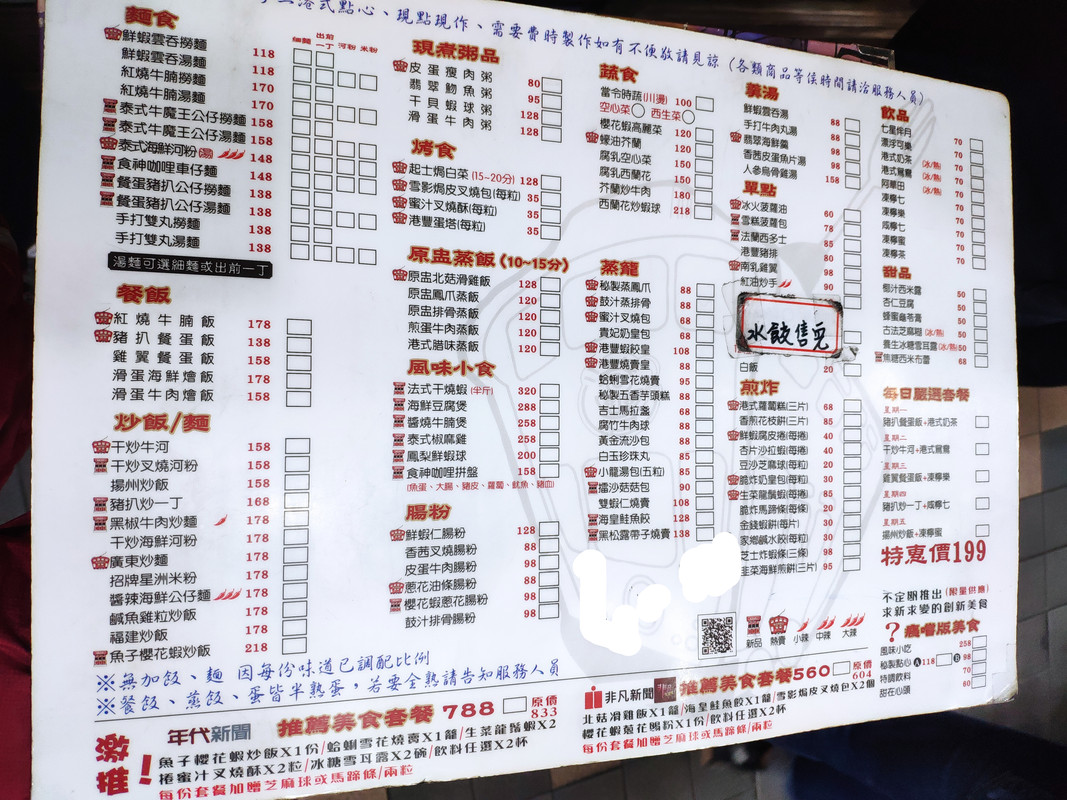 港式點心、現點現作、需要費時製作如有不便敬請見諒(各類商品等侯時間請洽服務人員)
麵食
細麵 出前一丁 河粉 米粉
鮮蝦雲吞撈麵 118
鮮蝦雲吞湯麵 118
紅燒牛腩撈麵 170
紅燒牛腩湯麵 170
泰式牛魔王公仔撈麵 158
泰式牛魔王公仔湯麵 158
泰式海鮮河粉(湯) 148
食神咖哩車仔麵 148
餐蛋豬扒公仔撈麵 138
餐蛋豬扒公仔湯麵 138
手打雙丸撈麵 138
手打雙丸湯麵 138
湯麵可選細麵或出前一丁
餐飯
紅燒牛腩飯 178
豬扒餐蛋飯 138
雞翼餐蛋飯 158
滑蛋海鮮燴飯 178
滑蛋牛肉燴飯 158
炒飯/麵
干炒牛河 158
干炒叉燒河粉 158
揚州炒飯 158
豬扒炒一丁 168
黑椒牛肉炒麵 178
干炒海鮮河粉 178
廣東炒麵 178
招牌星洲米粉 178
醬辣海鮮公仔麵 178
鹹魚雞粒炒飯 178
福建炒飯 178
魚子櫻花蝦炒飯 218
現煮粥品
皮蛋瘦肉粥 80
翡翠魩魚粥 95
干貝蝦球粥 128
滑蛋牛肉粥 128
烤食
起士焗白菜(15~20分) 128
雪影焗皮叉燒包(每粒) 35
蜜汁叉燒酥(每粒) 35
港豐蛋塔(每粒) 35
原盅蒸飯(10~15分)
原盅北菇滑雞飯 128
原盅鳳爪蒸飯 120
原盅排骨蒸飯 120
煎蛋牛肉蒸飯 120
港式腊味蒸飯 120
風味小食
法式干燒蝦(半斤) 320
海鮮豆腐煲 288
醬燒牛腩煲 258
泰式椒麻雞 258
鳳梨鮮蝦球 200
食神咖哩拼盤 158
(魚蛋、大腸、豬皮、蘿蔔、魷魚、豬血)
腸粉
鮮蝦仁腸粉 128
香茜叉燒腸粉 88
皮蛋牛肉腸粉 98
蔥花油條腸粉 88
櫻花蝦蔥花腸粉 98
鼓汁排骨腸粉 98
蔬食
當令時蔬(川燙) 100
空心菜 西生菜
櫻花蝦高麗菜 120
蠔油芥蘭 120
腐乳空心菜 150
腐乳西蘭花 150
芥蘭炒牛肉 180
西蘭花炒蝦球 218
蒸籠
秘製蒸鳳爪 88
鼓汁蒸排骨 88
蜜汁叉燒包 88
貴妃奶皇包 68
港豐蝦餃皇 108
港豐燒賣皇 88
蛤蜊雪花燒賣 95
秘製五香芋頭糕 88
吉士馬拉盞 68
腐竹牛肉球 88
黃金流沙包 88
白玉珍珠丸 85
小龍湯包(五粒) 85
燿沙菇菇包 90
雙蝦仁燒賣 108
海皇鮭魚餃 128
黑松露帶子燒賣 138
羹湯
鮮蝦雲吞湯 88
手打牛肉丸湯 88
翡翠海鮮羹 138
香茜皮蛋魚片湯 98
人參烏骨雞湯 158
單點
冰火菠蘿油 60
雪糕菠蘿包 78
法蘭西多士 85
港豐豬排 80
南乳雞翼 98
紅油炒手 90
水餃售完
白飯 20
煎炸
港式蘿蔔糕(三片) 68
香煎花枝餅(三片) 85
鮮蝦腐皮捲(每捲) 40
杏片沙拉蝦(每捲) 40
豆沙芝麻球(每粒) 20
脆炸奶皇包(每粒) 30
生菜龍鬚蝦(每捲) 85
脆炸馬蹄條(每條) 20
金錢蝦餅(每片) 30
家鄉鹹水餃(每粒) 30
芝士炸蝦條(三條) 98
韭菜海鮮煎餅(三片) 95
新品 熱賣 小辣 中辣 大辣
飲品
七星伴月 70
漂浮可樂 70
港式奶茶(冰/熱) 70
港式鴛鴦(冰/熱) 70
阿華田(冰/熱) 70
凍檸七 70
凍檸樂 70
咸檸七 70
凍檸蜜 70
凍檸茶 70
甜品
椰汁西米露 50
杏仁豆腐 50
蜂蜜龜苓膏 50
古法芝麻糊(冰/熱) 50
養生冰糖雪耳露(冰/熱) 50
焦糖西米布蕾 68
每日嚴選套餐
星期一
豬扒餐蛋飯+港式奶茶
星期二
干炒牛河+港式鴛鴦
星期三
雞翼餐蛋飯+凍檸樂
星期四
豬扒炒一丁+咸檸七
星期五
揚州炒飯+凍檸蜜
特惠價199
不定期推出(限量供應)
求新求變的創新美食
?瘋嚐版美食
風味小吃 258
秘製點心 A118 B 98
特調飲料 70
甜在心頭 60
※無加飯、麵 因每份味道已調配比例
※餐飯、蒸飯、蛋皆半熟蛋,若要全熟請告知服務人員
激推!
年代新聞 推薦美食套餐 788 原價833
魚子櫻花蝦炒飯X1份/蛤蜊雪花燒賣X1籠/生菜龍鬚蝦X2
捲蜜汁叉燒酥X2粒/冰糖雪耳露X2碗/飲料任選X2杯
每份套餐加贈芝麻球或馬蹄條/兩粒
非凡新聞 推薦美食套餐560 原價604
北菇滑雞飯X1籠/海皇鮭魚餃X1籠/雪影焗皮叉燒包X2個
櫻花蝦蔥花腸粉X1份/飲料任選X2杯
每份套餐加贈芝麻球或馬蹄條/兩粒